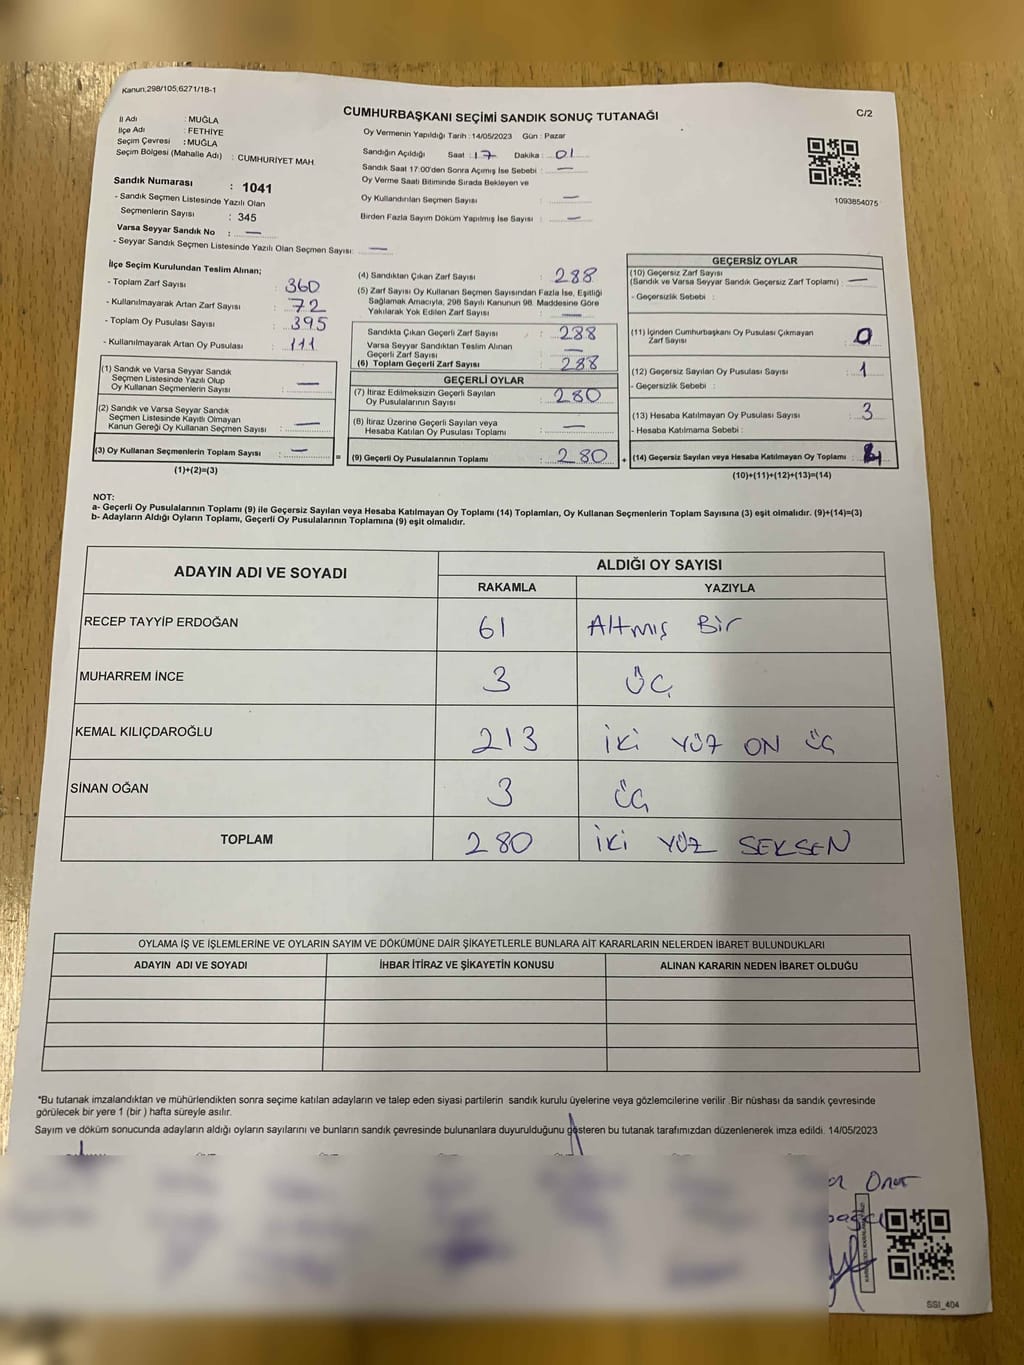 Kanun,298/105,6271/18-1
CUMHURBAŞKANI SEÇİMİ SANDIK SONUÇ TUTANAĞI
C/2
İl Adı : MUĞLA
İlçe Adı : FETHİYE
Seçim Çevresi : MUĞLA
Seçim Bölgesi (Mahalle Adı) : CUMHURİYET MAH.
Sandık Numarası : 1041
- Sandık Seçmen Listesinde Yazılı Olan
Seçmenlerin Sayısı : 345
Varsa Seyyar Sandık No : —
- Seyyar Sandık Seçmen Listesinde Yazılı Olan Seçmen Sayısı: —
Oy Vermenin Yapıldığı Tarih : 14/05/2023 Gün : Pazar
Sandığın Açıldığı Saat : 17 Dakika : 01
Sandık Saat 17:00'den Sonra Açımış İse Sebebi : —
Oy Verme Saati Bitiminde Sırada Bekleyen ve
Oy Kullandırılan Seçmen Sayısı : —
Birden Fazla Sayım Döküm Yapılmış İse Sayısı : —
1093854075
İlçe Seçim Kurulundan Teslim Alınan;
- Toplam Zarf Sayısı : 360
- Kullanılmayarak Artan Zarf Sayısı : 72
- Toplam Oy Pusulası Sayısı : 395
- Kullanılmayarak Artan Oy Pusulası : 111
(1) Sandık ve Varsa Seyyar Sandık
Seçmen Listesinde Yazılı Olup
Oy Kullanan Seçmenlerin Sayısı : —
(2) Sandık ve Varsa Seyyar Sandık
Seçmen Listesinde Kayıtlı Olmayan
Kanun Gereği Oy Kullanan Seçmen Sayısı : —
(3) Oy Kullanan Seçmenlerin Toplam Sayısı : —
(1)+(2)=(3)
(4) Sandıktan Çıkan Zarf Sayısı : 288
(5) Zarf Sayısı Oy Kullanan Seçmen Sayısından Fazla İse, Eşitliği
Sağlamak Amacıyla, 298 Sayılı Kanunun 98. Maddesine Göre
Yakılarak Yok Edilen Zarf Sayısı : —
Sandıkta Çıkan Geçerli Zarf Sayısı : 288
Varsa Seyyar Sandıktan Teslim Alınan
Geçerli Zarf Sayısı : —
(6) Toplam Geçerli Zarf Sayısı : 288
GEÇERLİ OYLAR
(7) İtiraz Edilmeksizin Geçerli Sayılan
Oy Pusulalarının Sayısı : 280
(8) İtiraz Üzerine Geçerli Sayılan veya
Hesaba Katılan Oy Pusulası Toplamı : —
= (9) Geçerli Oy Pusulalarının Toplamı : 280 +
GEÇERSİZ OYLAR
(10) Geçersiz Zarf Sayısı
(Sandık ve Varsa Seyyar Sandık Geçersiz Zarf Toplamı) : —
- Geçersizlik Sebebi :
(11) İçinden Cumhurbaşkanı Oy Pusulası Çıkmayan
Zarf Sayısı : 0
(12) Geçersiz Sayılan Oy Pusulası Sayısı : 1
- Geçersizlik Sebebi :
(13) Hesaba Katılmayan Oy Pusulası Sayısı : 3
- Hesaba Katılmama Sebebi :
(14) Geçersiz Sayılan veya Hesaba Katılmayan Oy Toplamı :
(10)+(11)+(12)+(13)=(14)
NOT:
a- Geçerli Oy Pusulalarının Toplamı (9) ile Geçersiz Sayılan veya Hesaba Katılmayan Oy Toplamı (14) Toplamları, Oy Kullanan Seçmenlerin Toplam Sayısına (3) eşit olmalıdır. (9)+(14)=(3)
b- Adayların Aldığı Oyların Toplamı, Geçerli Oy Pusulalarının Toplamına (9) eşit olmalıdır.
ADAYIN ADI VE SOYADI ALDIĞI OY SAYISI
RAKAMLA YAZIYLA
RECEP TAYYİP ERDOĞAN 61 Altmış Bir
MUHARREM İNCE 3 ÜÇ
KEMAL KILIÇDAROĞLU 213 iki YÜZ ON ÜÇ
SİNAN OĞAN 3 ÜÇ
TOPLAM 280 iki YÜZ SEKSEN
OYLAMA İŞ VE İŞLEMLERİNE VE OYLARIN SAYIM VE DÖKÜMÜNE DAİR ŞİKAYETLERLE BUNLARA AİT KARARLARIN NELERDEN İBARET BULUNDUKLARI
ADAYIN ADI VE SOYADI İHBAR İTİRAZ VE ŞİKAYETİN KONUSU ALINAN KARARIN NEDEN İBARET OLDUĞU
*Bu tutanak imzalandıktan ve mühürlendikten sonra seçime katılan adayların ve talep eden siyasi partilerin sandık kurulu üyelerine veya gözlemcilerine verilir .Bir nüshası da sandık çevresinde
görülecek bir yere 1 (bir ) hafta süreyle asılır.
Sayım ve döküm sonucunda adayların aldığı oyların sayılarını ve bunların sandık çevresinde bulunanlara duyurulduğunu gösteren bu tutanak tarafımızdan düzenlenerek imza edildi. 14/05/2023
Onur
SSI_404